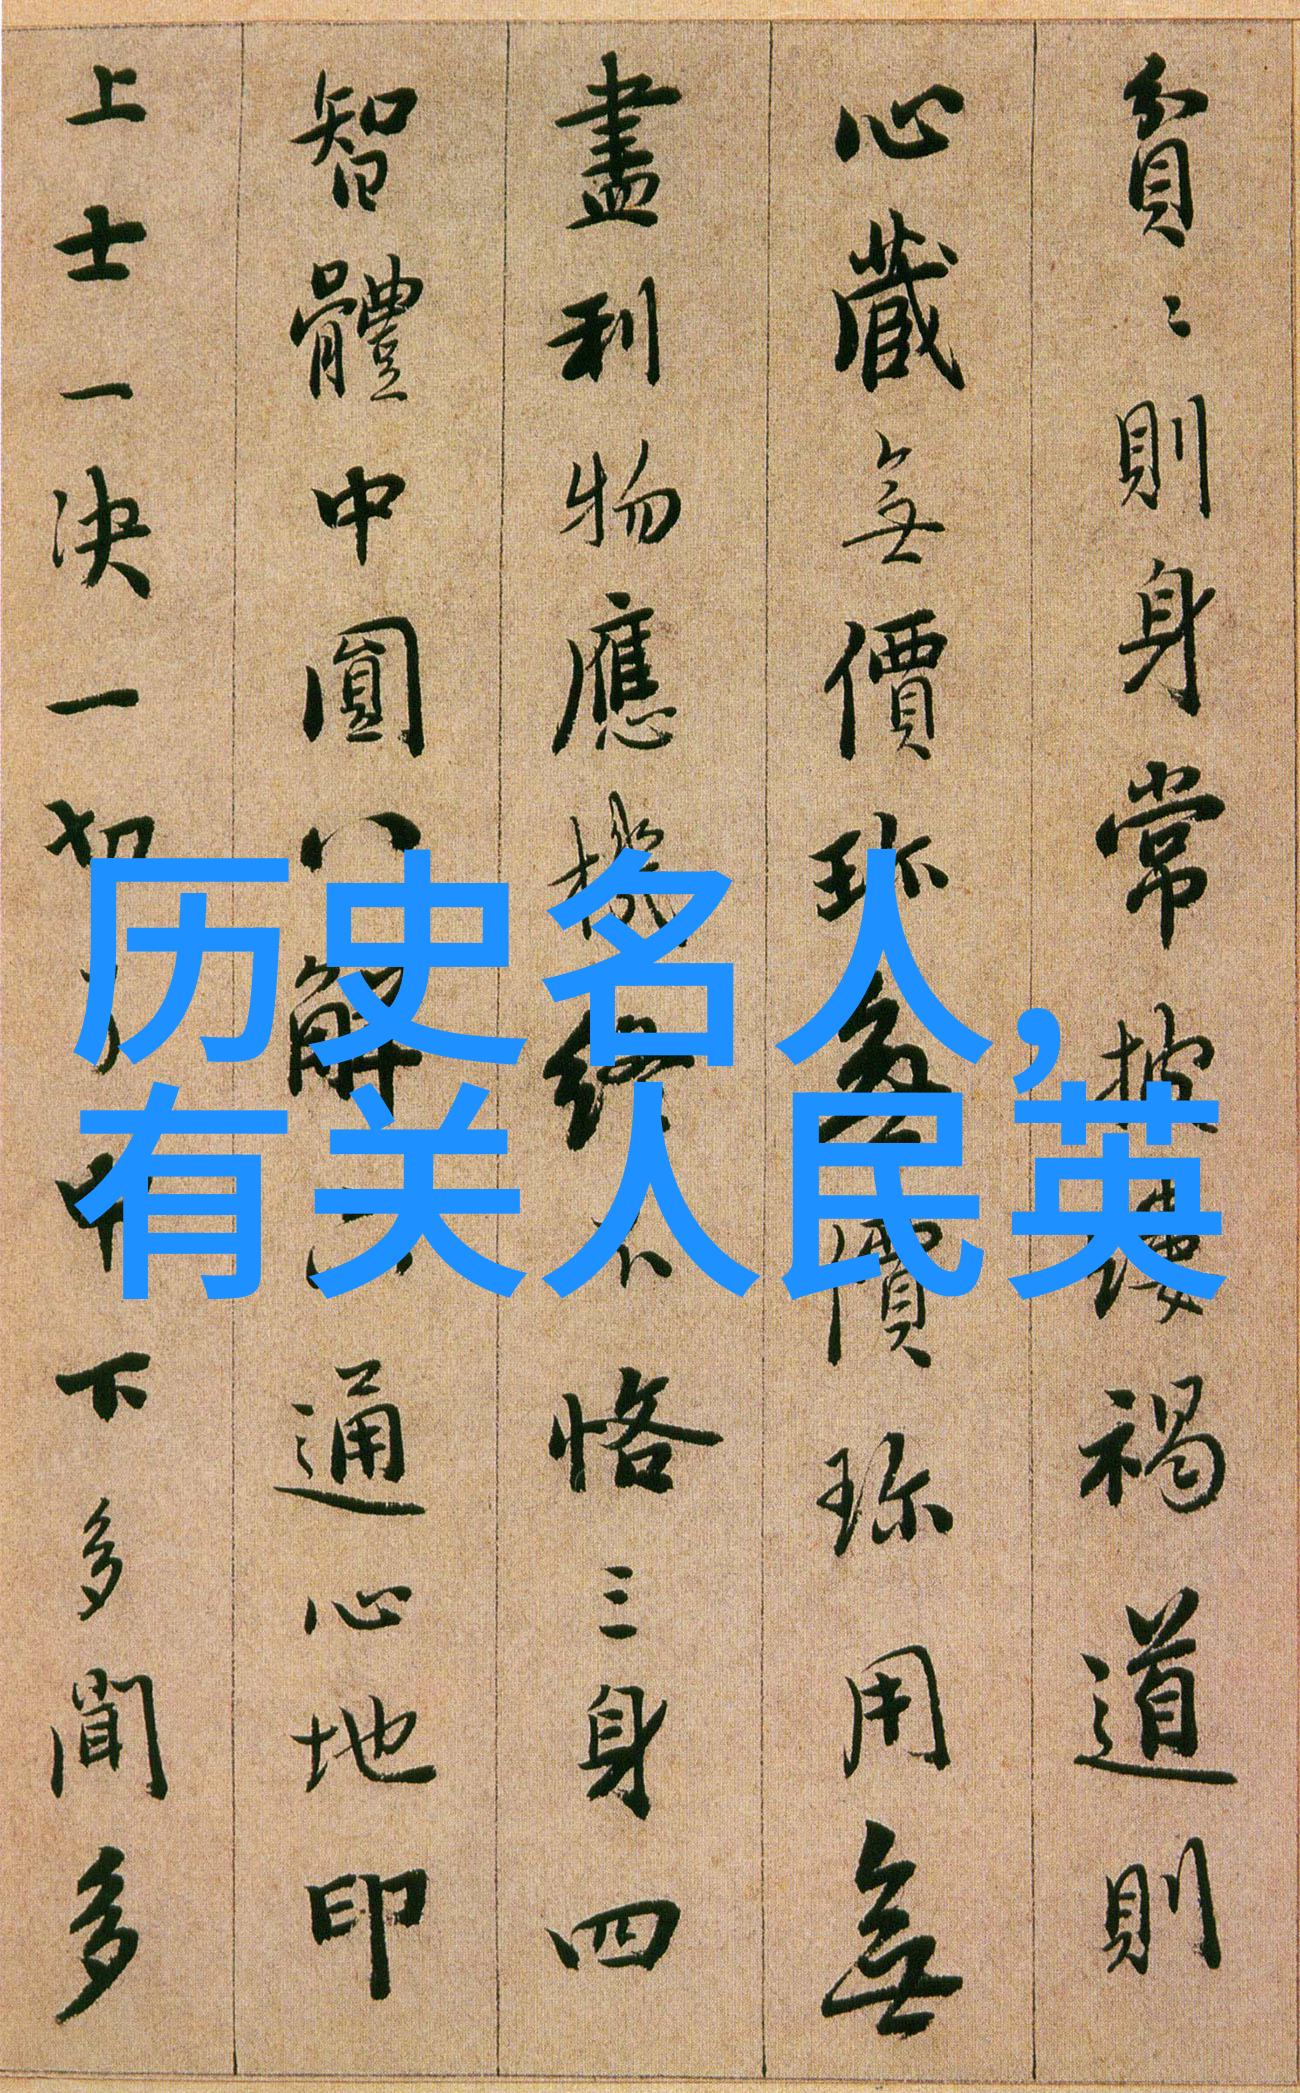 貧〻則身常披縷褐道則
心藏無價珎無價珎用無
盡利物應機終不恪三身四
智體中圓八解通心地印
上士一决一切中下多聞多
历史名人,
有关人民英